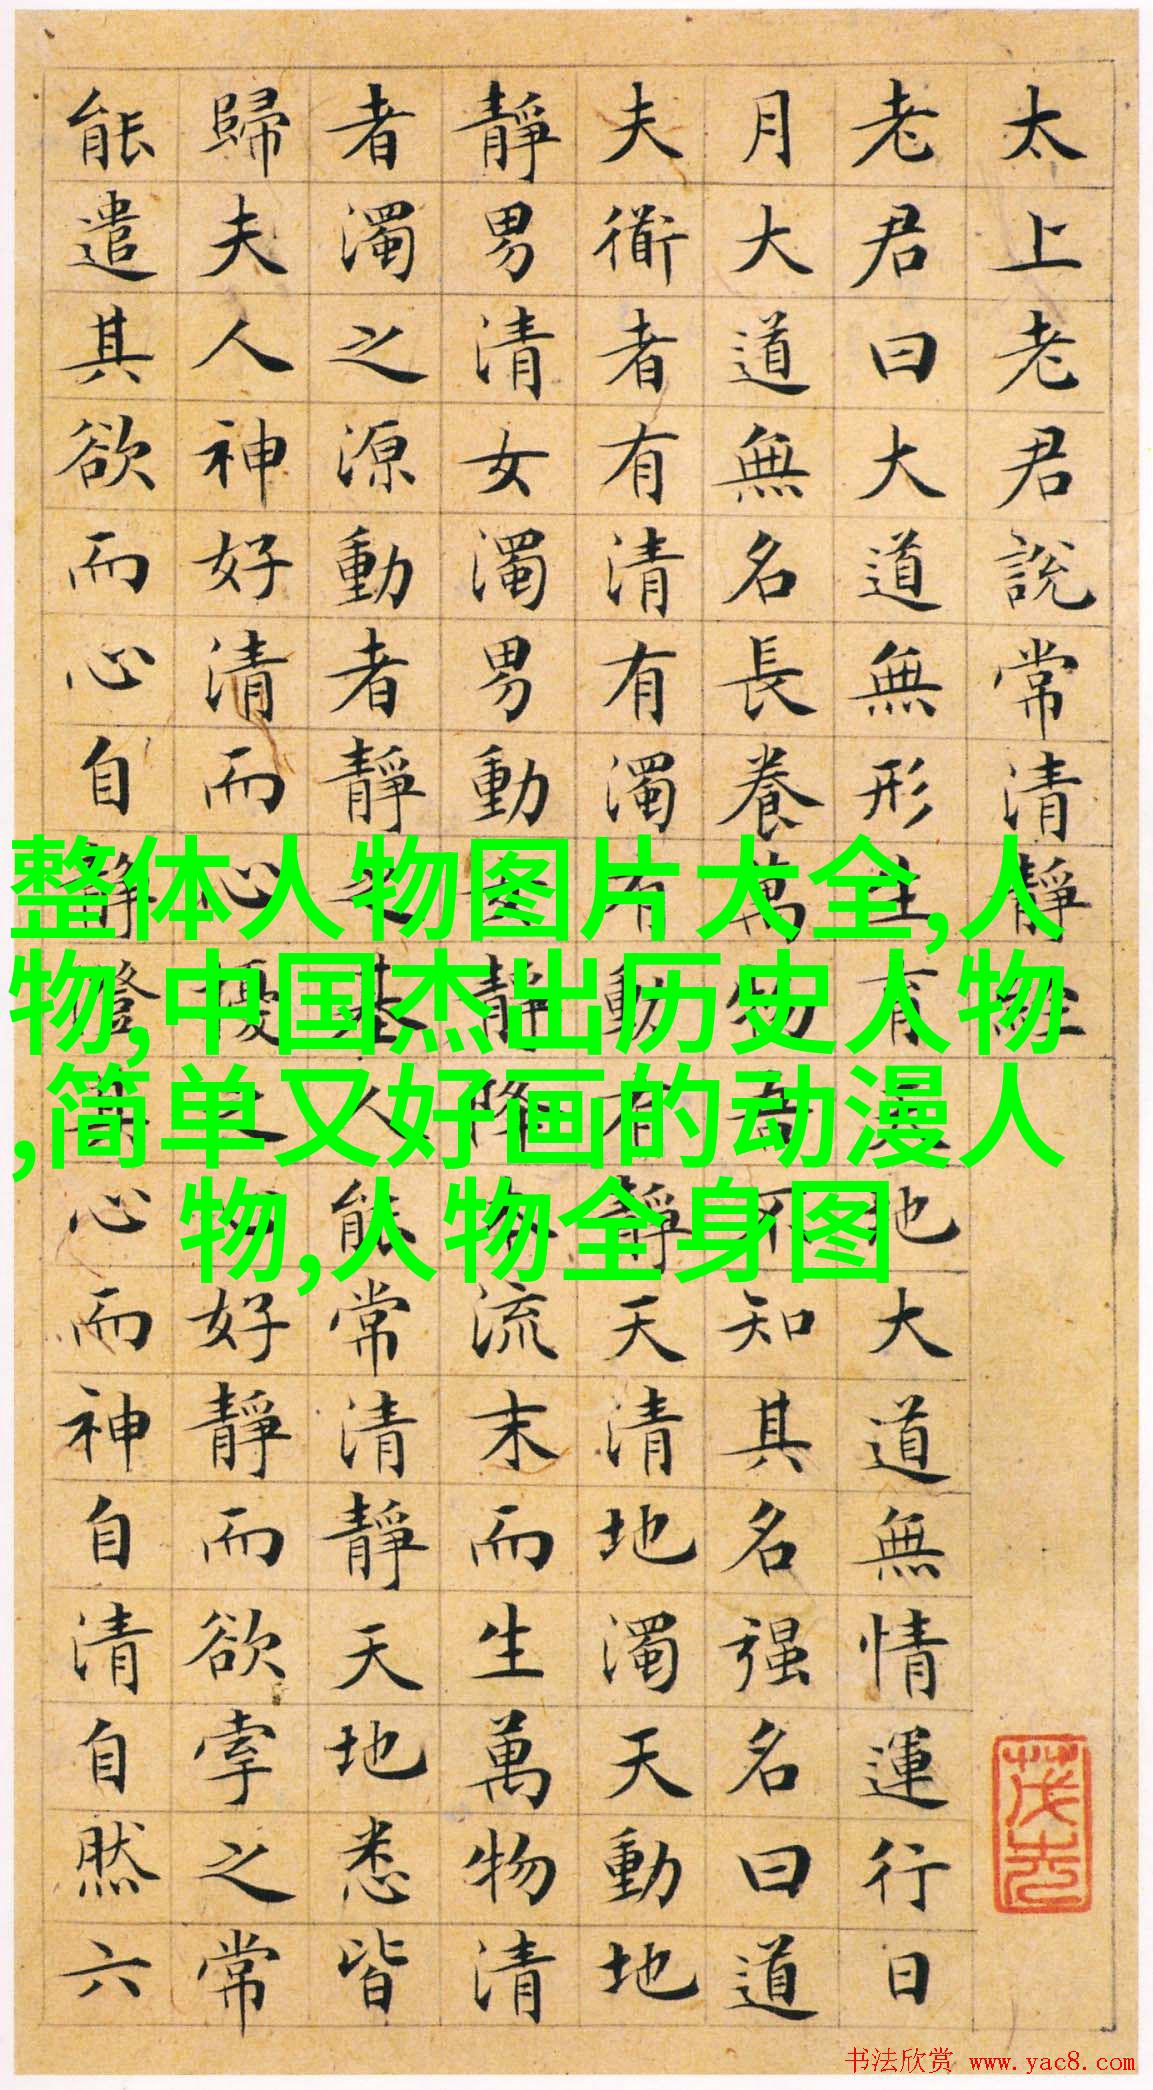 太上老君說常清靜經
老君曰大道無形生育天地大道無情運行日
月大道無名長養萬物吾不知其名强名曰道
夫衜者有清有濁有動有靜天清地濁天動地
靜男清女濁男動女靜降本流末而生萬物清
者濁之源動者靜之基人能常清靜天地悉皆
歸夫人神好清而心擾之心好靜而欲牽之常
能遣其欲而心自靜澄其心而神自清自然六
整体人物图片大全,人
物,中国杰出历史人物
,简单又好画的动漫人
物,人物全身图
书法欣赏 www.yac8.com